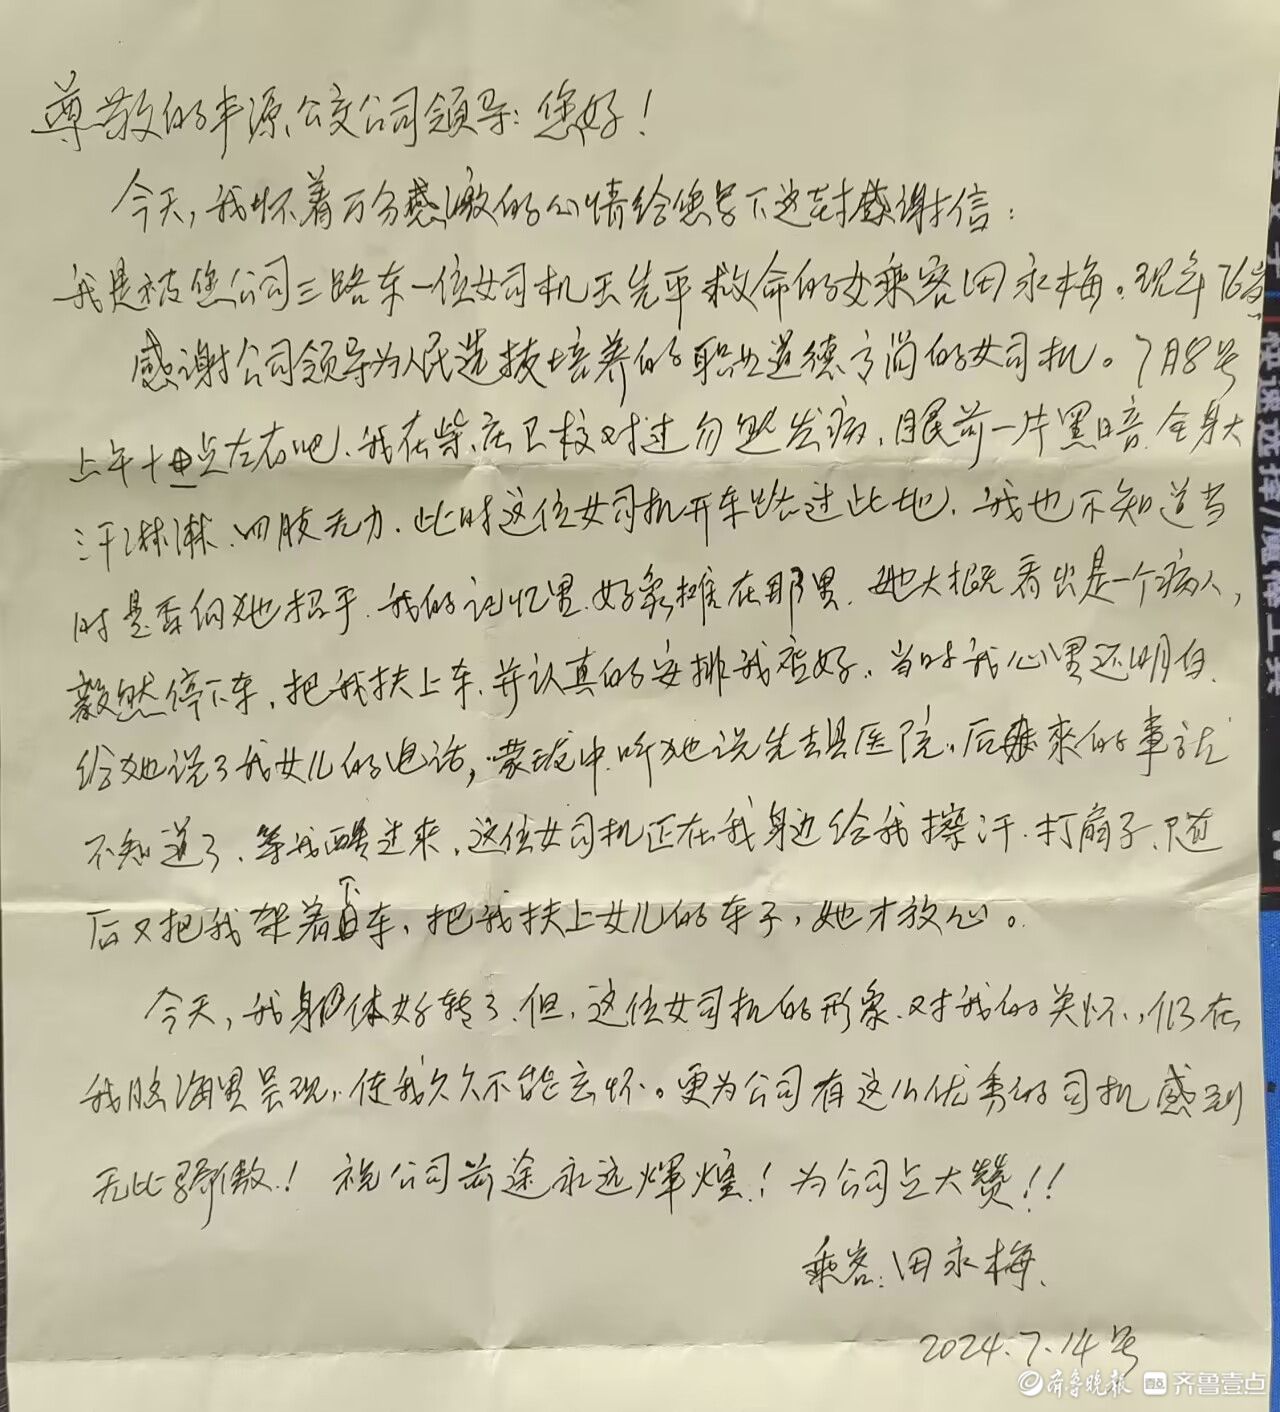 尊敬的丰源公交公司领导：您好！
今天，我怀着万分感激的心情给您写下这封感谢信：
我是被您公司三路车一位女司机王先平救命的女乘客田永梅。现年76岁
感谢公司领导为人民选拔培养的职业道德高尚的女司机。7月8号
上午十点左右吧、我在柴庄卫校对过忽然发病，眼前一片黑暗、全身大
汗淋淋、四肢无力．此时这位女司机开车路过此地、我也不知道当
时是否向她招手．我的记忆里．好象摊在那里．她大概看出是一个病人，
毅然停下车，把我扶上车、并认真的安排我座好．当时我心里还明白、
给她说了我女儿的电话，蒙珑中．听她说先去县医院．后来的事就
不知道了、等我醒过来，这位女司机正在我身边给我擦汗．打扇子、
后又把我架着下车，把我扶上女儿的车子，她才放心。
今天，我身体好转了．但，这位女司机的形象．对我的关怀，仍在
我脑海里呈现，使我久久不能忘怀。更为公司有这么优秀的司机感到
无比骄傲！祝公司前途永远辉煌！为公司点大赞！！
乘客：田永梅．
2024.7.14号
齐鲁晚报 齐鲁壹点